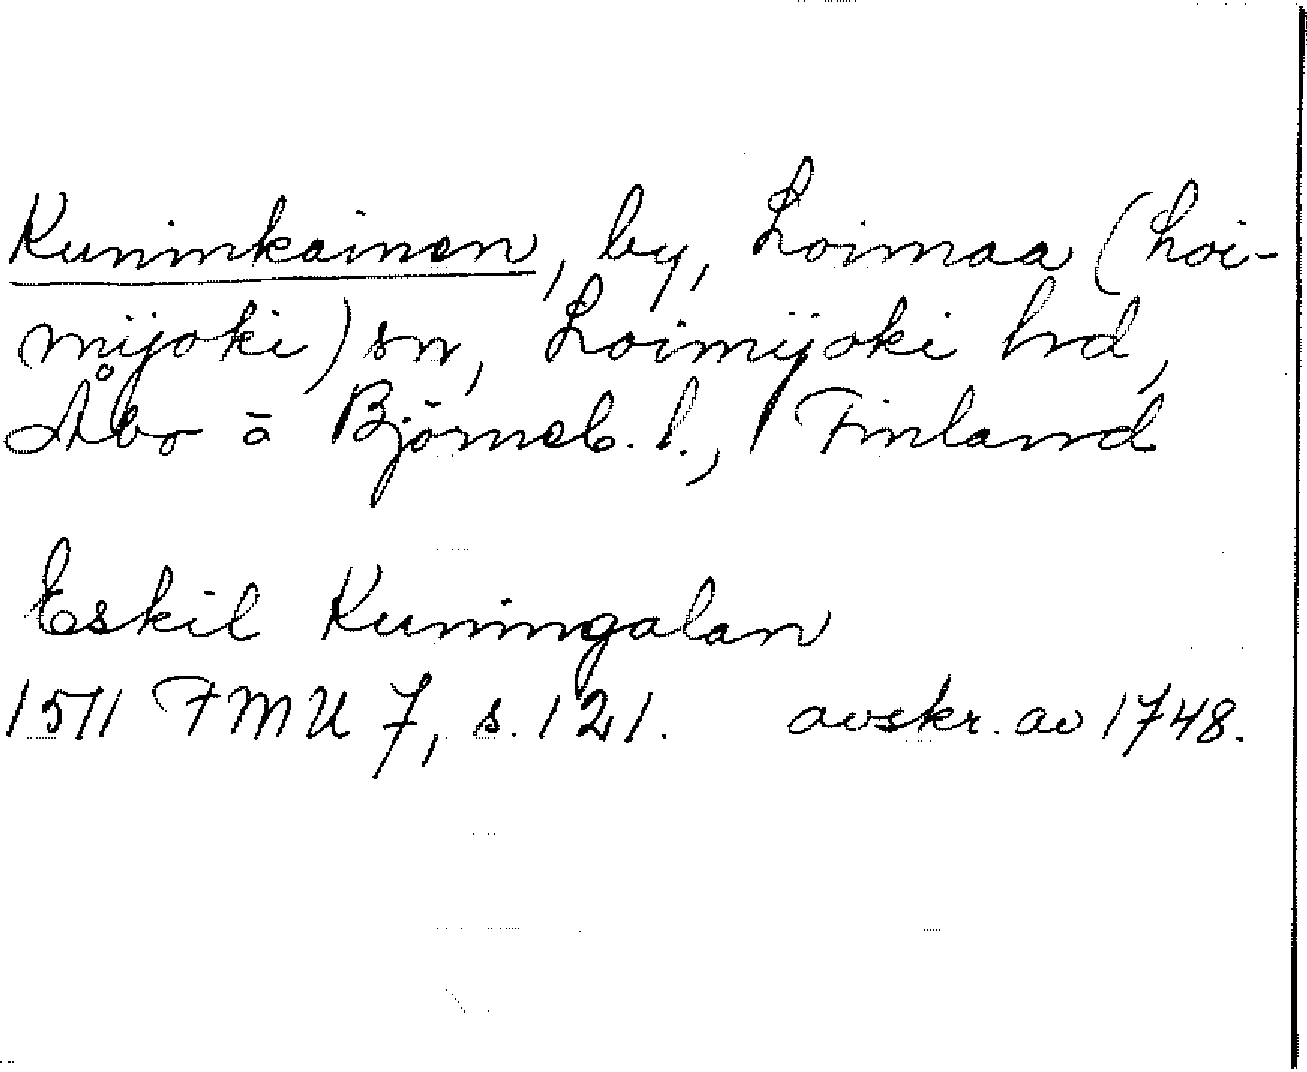 Kuninkainen, by, Loimaa (Loi-
mijoki) sn, Loimijoki hrd,
Åbo o Björneb. l., Finland
Eskil Kuningalan
1511 FMU 7, s. 121. avskr. av 1748.